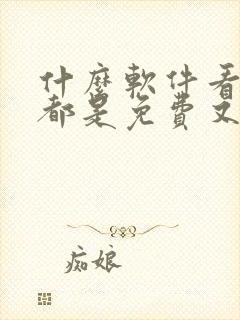 什麼軟件看
都是免費又
痴娘